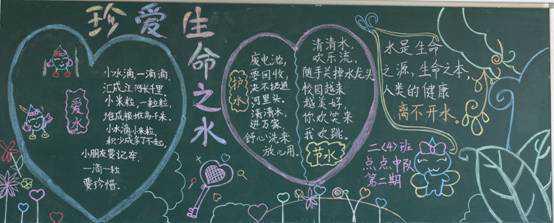 珍爱生命之水
爱水
小水滴一滴滴,
汇成江河长千里
小米粒,一粒粒,
堆成粮堆高千米.
小水滴小米粒,
积少成多了不起.
小朋友要记牢.
一滴一粒
要珍惜.
护水
废电池,
要回收,
决不扔进
河里头.
清清水,
进万家,
舒心洗来
放心用.
清清水.
欢乐流.
随手关掉水龙头
校园越来
越美好.
你欢笑来
我欢跳.
节水
水是生命
之源,生命之本.
人类的健康
离不开水.
二(4)班
点点中队
第二期